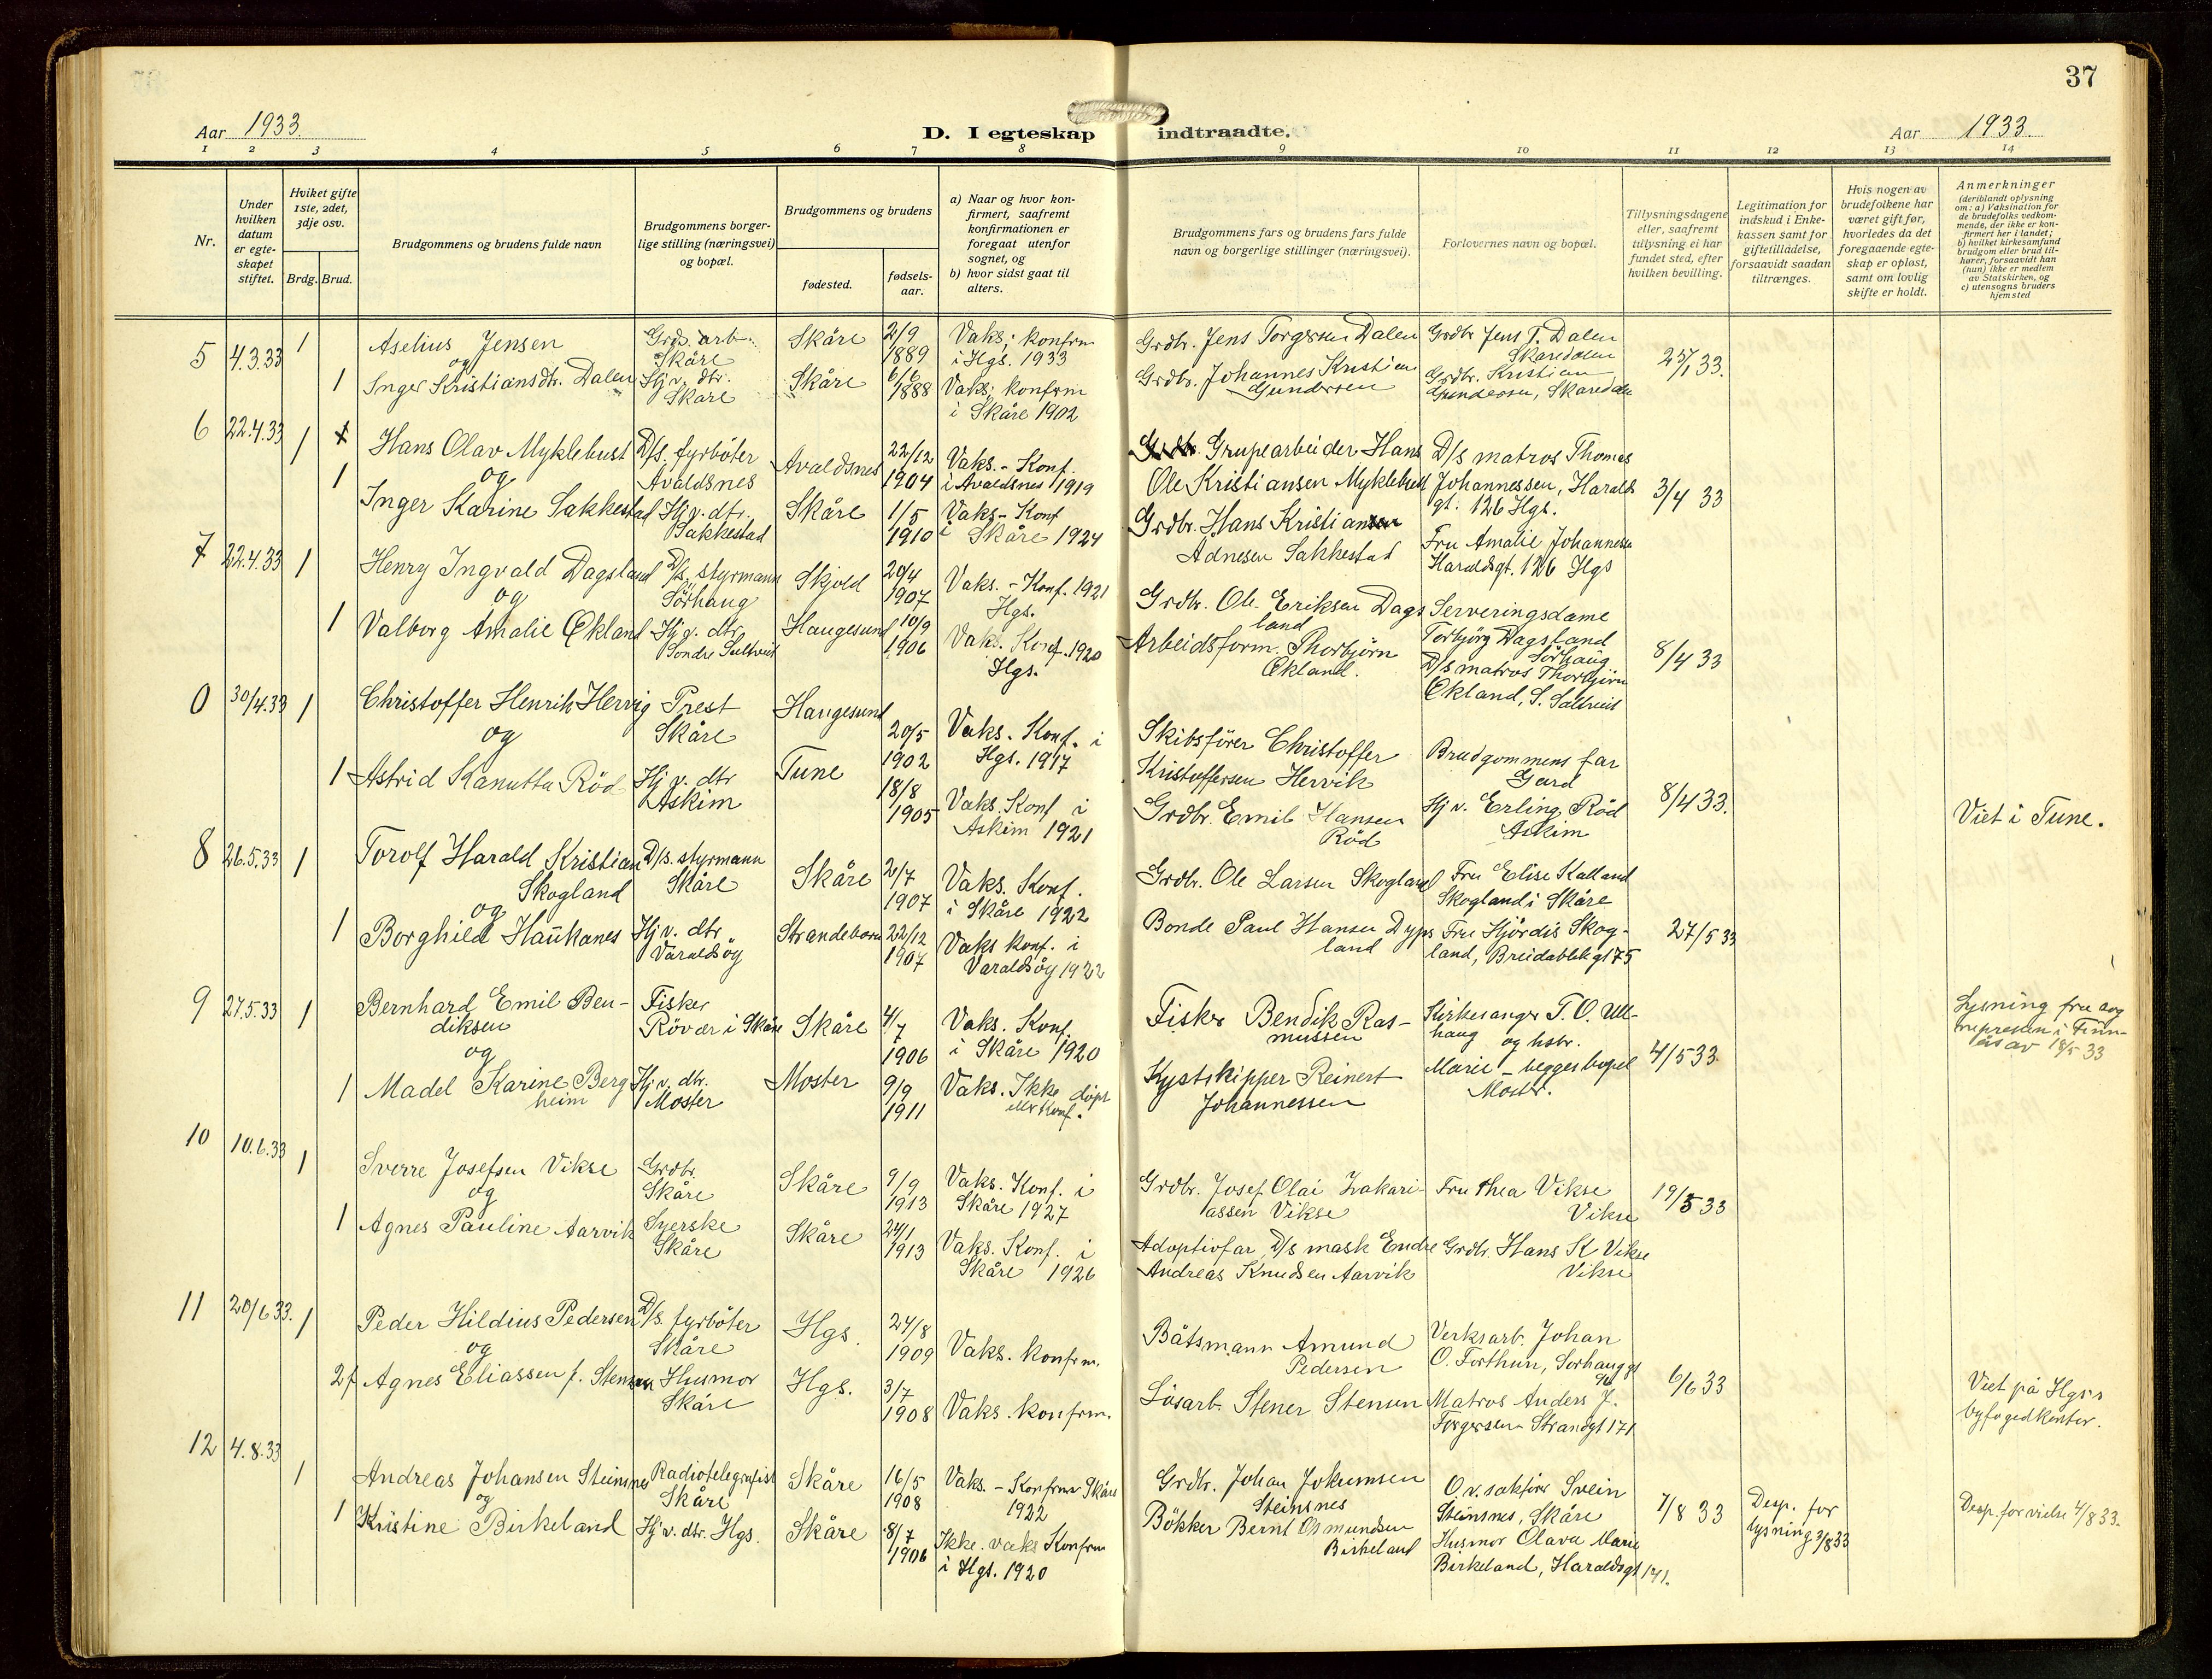 37
Aar 1933.
D. I egteskap indtraadte.
Aar 1933.
1 2 3 4 5 6 7 8 9 10 11 12 13 14
Nr.
Under hvilken datum er egteskapet stiftet.
Hviket gifte 1ste, 2det, 3dje osv.
Brdg. Brud.
Brudgommens og brudens fulde navn
Brudgommens borgerlige stilling (næringsvei) og bopæl.
Brudgommens og brudens
fødested.
fødselsaar.
a) Naar og hvor konfirmert, saafremt konfirmationen er foregaat utenfor sognet, og
b) hvor sidst gaat til alters.
Brudgommens fars og brudens fars fulde navn og borgerlige stillinger (næringsvei).
Forlovernes navn og bopæl.
Tillysningsdagene eller, saafremt tillysning ei har fundet sted, efter hvilken bevilling.
Legitimation for indskud i Enkekassen samt for giftetilladelse, forsaavidt saadan tiltrænges.
Hvis nogen av brudefolkene har været gift før, hvorledes da det foregaaende egteskap er opløst, samt om lovlig skifte er holdt.
Anmerkninger (deriblandt oplysning om: a) Vaksination for de brudefolks vedkommende, der ikke er konfirmert her i landet; b) hvilket kirkesamfund brudgom eller brud tilhører, forsaavidt han (hun) ikke er medlem av Statskirken, og c) utensogns bruders hjemsted
5 4.3.33 1 Aselius Jensen Grds. arb. Skåre Skåre 2/9 1889 Vaks; konfrm i Hgs. 1933 Grdbr. Jens Torgersen Dalen Grdbr Jens T. Dalen Skåredalen
og
1 Inger Kristiansdtr. Dalen Hj.v. dtr. Skåre Skåre 6/6 1888 Vaks; konfrm i Skåre 1902 Grdbr. Johannes Kristian Gundersen Grdbr. Kristian Gundersen, Skåredalen
6 22.4.33 1 Hans Olav Myklebust D/s. fyrböter Avaldsnes Avaldsnes 22/12 1904 Vaks. - Konf. i Avaldsnes 1919 Grupearbeider Hans Ole Kristiansen Myklebust D/s matros Thomas Johannessen, Haralds gt. 126 Hgs. 3/4 33
og
1 Inger Karine Sakkestad Hj.v. dtr. Sakkestad Skåre 1/5 1910 Vaks - Konf i Skåre 1924 Grdbr. Hans Kristian Adnesen Sakkestad Fru Amalie Johannessen Haraldsgt. 126 Hgs
7 22.4.33 1 Henry Ingvald Dagsland D/s. styrmann Sörhaug Skjold 20/4 1907 Vaks. - Konf. 1921 Hgs. Grdbr. Ole Eriksen Dagsland Serveringsdame Torbjörg Dagsland Sörhaug 8/4 33
og
1 Valborg Amalie Økland Hj.v. dtr Söndre Saltveit Haugesund 10/9 1906 Vaks. Konf. 1920 Hgs. Arbeidsform. Thorbjörn Økland. D/s matros Thorbjörn Økland, S. Saltveit
0 30/4.33 1 Christoffer Henrik Hervig Prest Skåre Haugesund 20/5 1902 Vaks. Konf. i Hgs. 1917 Skibsförer Christoffer Kristoffersen Hervik Brudgommens far Gard 8/4 33.
og
1 Astrid Kanutta Röd Hj.v. dtr Askim Tune 18/8 1905 Vaks. Konf i Askim 1921 Grdbr. Emil Hansen Röd Hj v. Erling Röd Askim Viet i Tune.
8 26.5.33 1 Torolf Harald Kristian Skogland D/s. styrmann Skåre Skåre 2/7 1907 Vaks. Konf. i Skåre 1922 Grdbr. Ole Larsen Skogland Fru Elise Kalland Skogland i Skåre
og
1 Borghild Haukanes Hj v. dtr Varaldsöy Strandebarm 22/12 1907 Vaks konf. i Varaldsöy 1922 Bonde Paul Hansen Dypsland Fru Hjördis Skogland, Breidablikgt 75 27/5 33
9 27.5.33 1 Bernhard Emil Bendiksen Fisker Rövær i Skåre Skåre 4/7 1906 Vaks. Konf. i Skåre 1920 Fisker Bendik Rasmussen Kirkesanger T. O. Ullhaug og hstr. 4/5 33 Lysning fra sogn i Finnås av 18/5 33
og
1 Madel Karine Bergheim Hj v. dtr. Moster Moster 9/9 1911 Vaks. Ikke döpt ell. konf. Kystskipper Reinert Johannessen Marie - begges bopel Moster.
10 10.6.33 1 Sverre Josefsen Vikse Grdbr. Skåre Skåre 9/9 1913 Vaks. Konf. i Skåre 1927 Grdbr. Josef Olai Zakariassen Vikse Fru Thea Vikse Vikse 19/5 33
og
1 Agnes Pauline Aarvik Syerske Skåre Skåre 24/1 1913 Vaks. Konf. i Skåre 1926 Adoptivfar D/s mask Endre Andreas Knudsen Aarvik Grdbr. Hans K Vikse Vikse
11 20/6 33. 1 Peder Hildius Pedersen D/s. fyrböter Skåre Hgs. 24/8 1909 Vaks. konfrm. Båtsmann Amund Pedersen Verksarb. Johan O. Forthun, Sorhauggt 6/6 33
og
2f Agnes Eliassen f. Stensen Husmor Skåre Hgs. 3/7 1908 Vaks. konfrm. Lösarb. Stener Stensen Matros Anders J. Torgersen Strandgt 171 Viet på Hgs's byfogedkontor.
12 4.8.33 1 Andreas Johansen Steinsnes Radiotelegrafist Skåre Skåre 16/5 1908 Vaks. - Konfrm Skåre 1922 Grdbr. Johan Jokumsen Steinsnes O.r.sakförer Svein Steinsnes, Skåre 7/8 33 Desp. for lysning 3/8 33 Desp. for vielse 4/8 33.
og
1 Kristine Birkeland Hj v. dtr. Hgs. Skåre 8/7 1906 Ikke. vaks Konfrm i Hgs. 1920 Bökker Bernt Osmundsen Birkeland Husmor Olava Marie Birkeland, Haraldsgt 141.